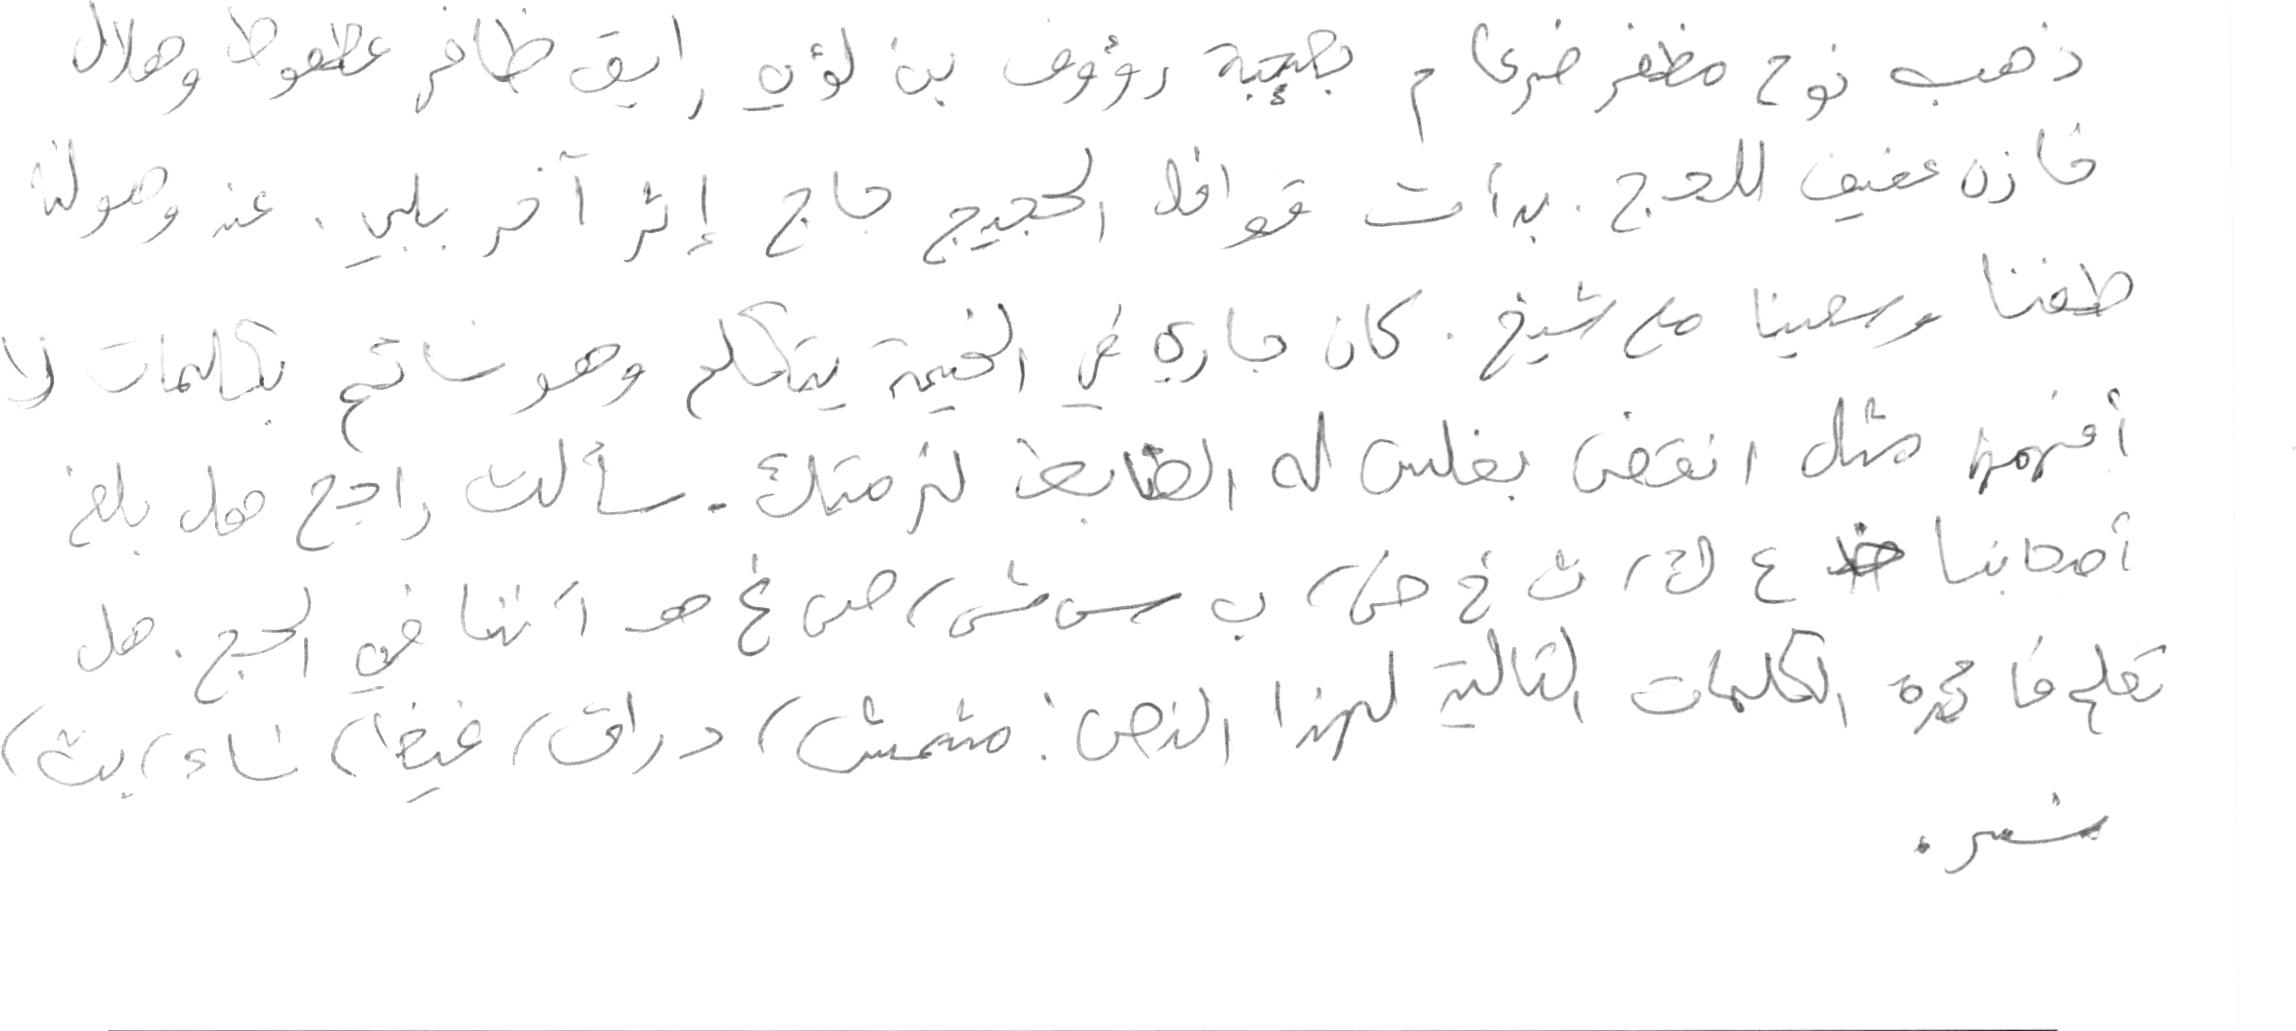 ذهب نوح مظفر ضرغام بصحبة رؤوف بن لؤي رايق ظافر عظعوط وهلال
خازن عفيف للحج. بدأت قوافل الحجيج حاج إثر آخر بلبي. عند وصولنا
طفنا وسعينا مع شيخ. كان جاري في الخيمة يتكلم وهو نائم بكلمات لا
أفهمها مثل انقض بغلس له الضابط لزمتك. سألت راجح هل بلغ
أصحابنا ع ك، ث خ ض، ب س ش، ص غ هـ أننا في الحج. هل
تعلم فائدة الكلمات التالية لهذا النص: مشمش، دراق، غيظ، شاء، بث،
شمر.